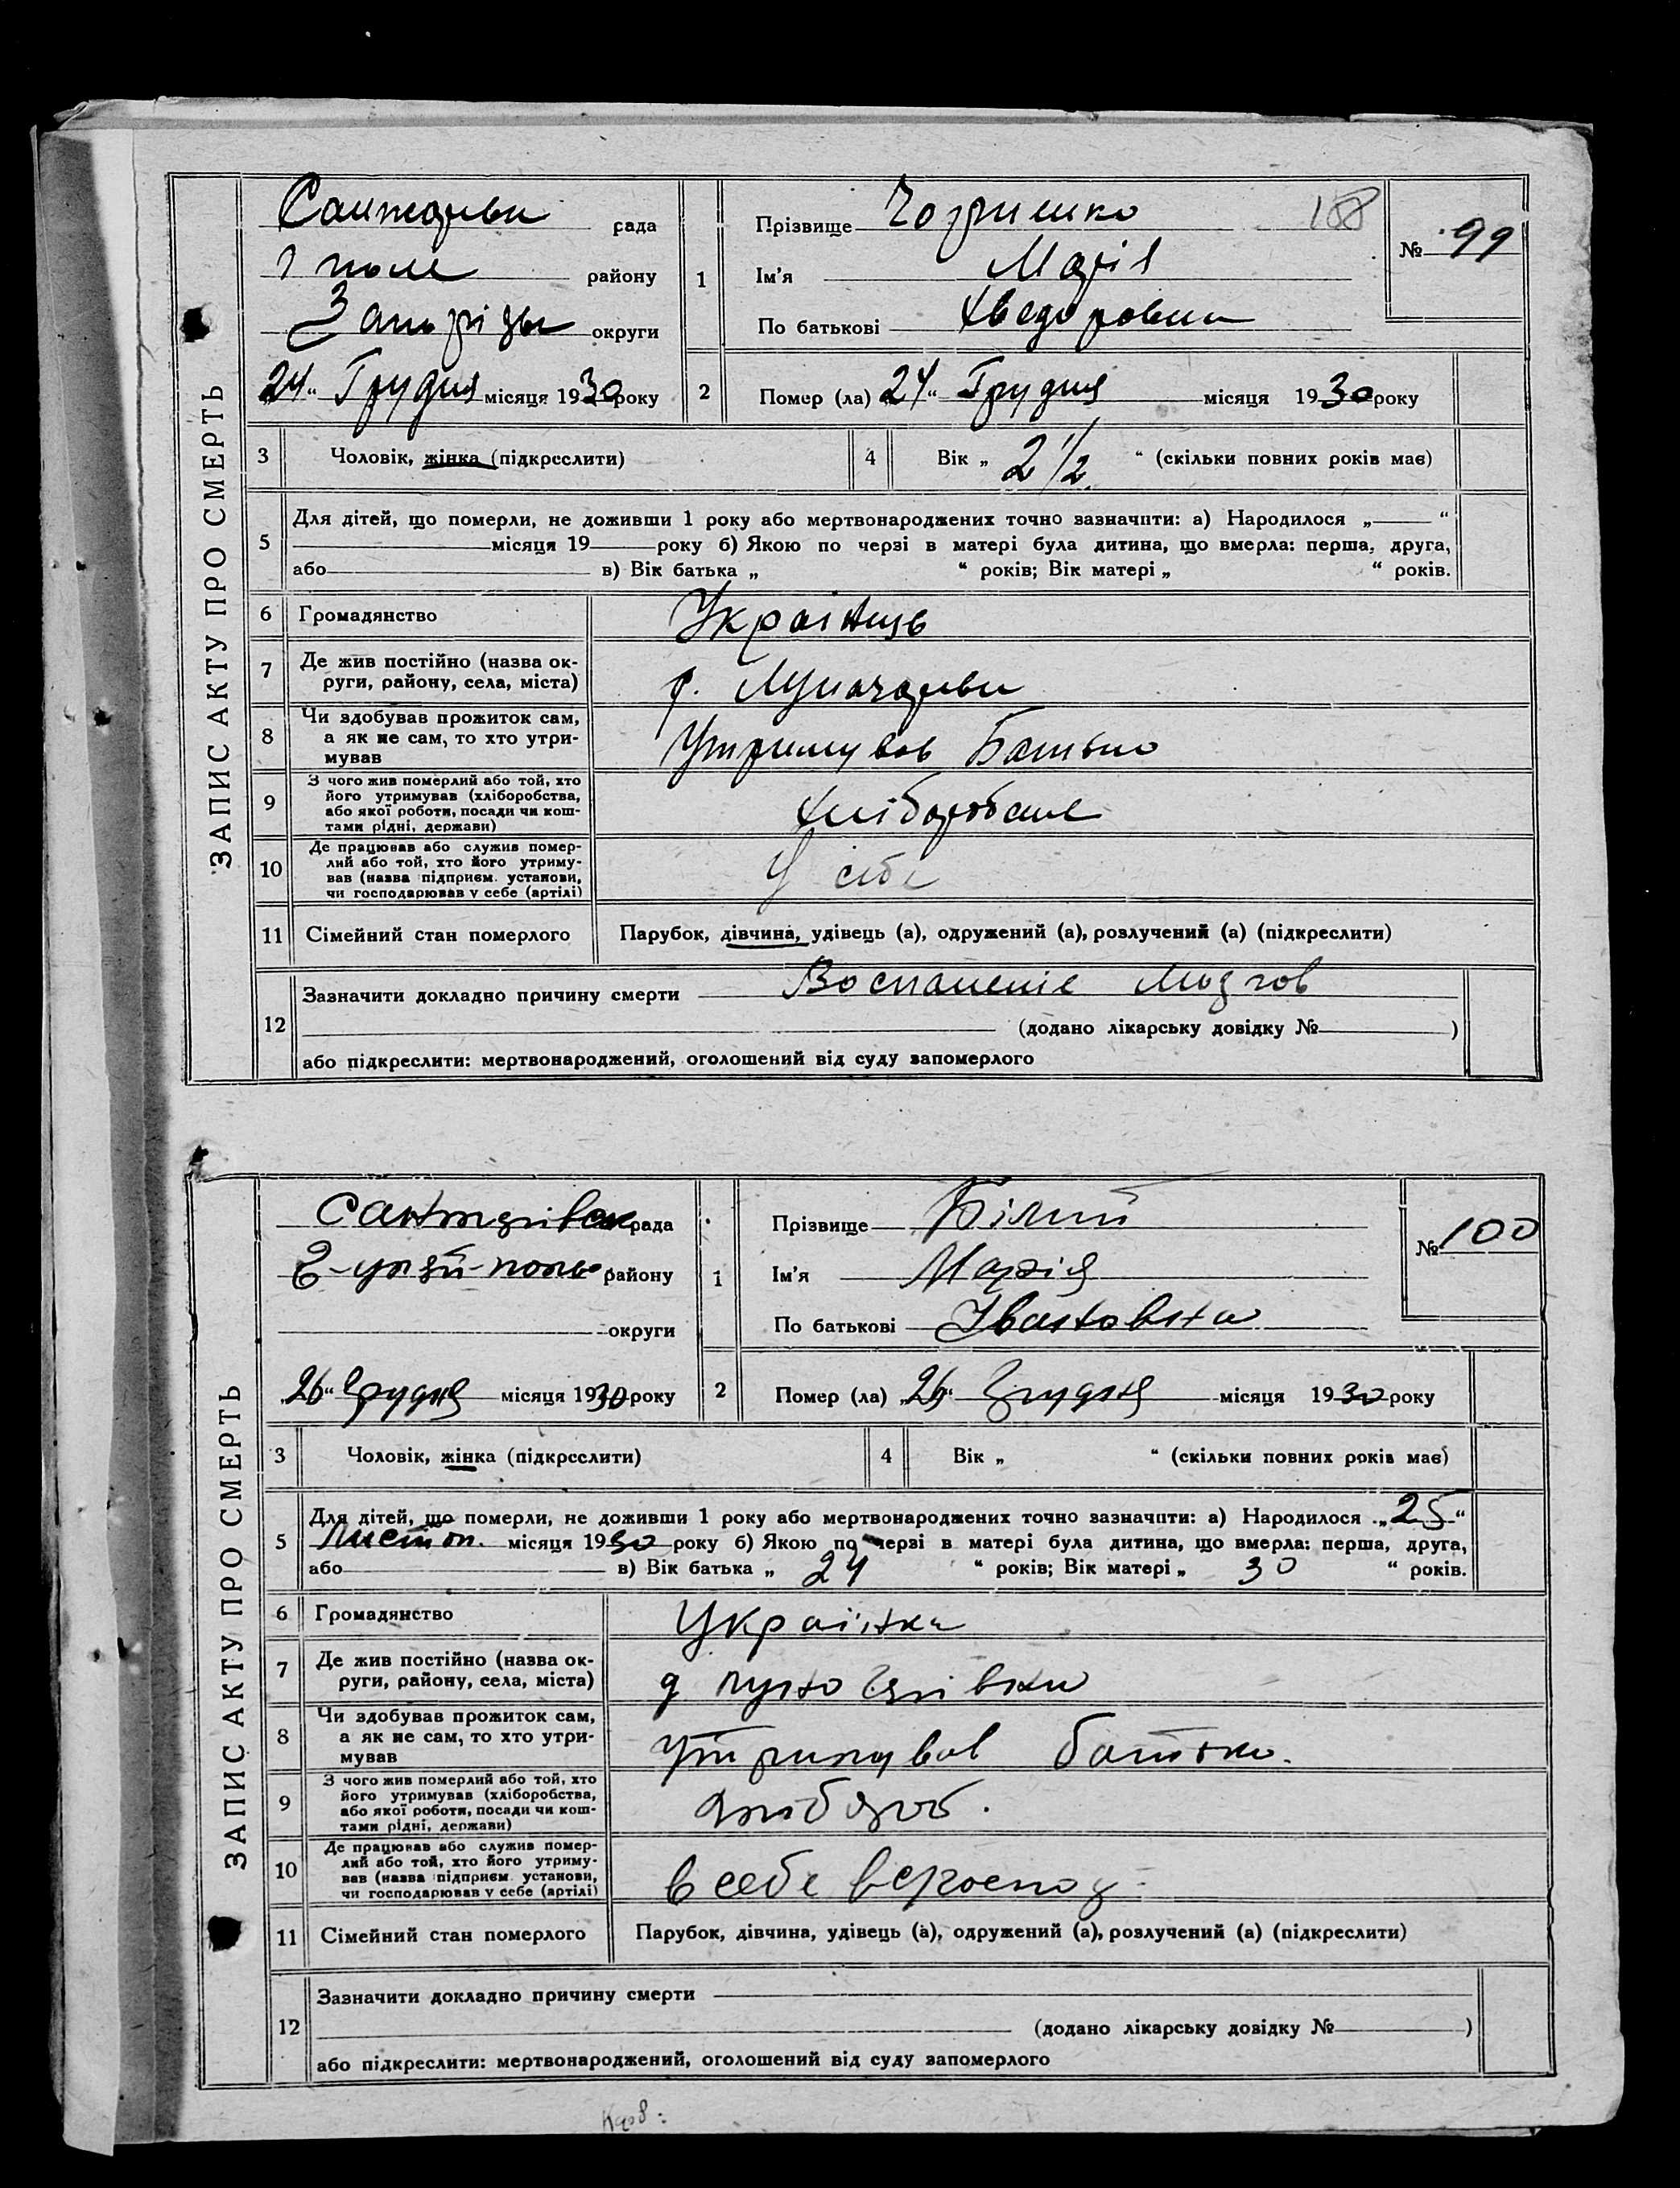 ЗАПИС АКТУ ПРО СМЕРТЬ
рада
району
округи
„24“ Грудня місяця 1930 року
1
Прізвище 188
Ім'я Марія
По батькові Хведоровна
№ 99
2 Помер (ла) 24“ Грудня місяця 1930 року
3 Чоловік, жінка (підкреслити)
4 Вік „ 2 1/2 “ (скільки повних років має)
5 Для дітей, що померли, не доживши 1 року або мертвонароджених точно зазначити: а) Народилося „ “
місяця 19 року б) Якою по черзі в матері була дитина, що вмерла: перша, друга,
або в) Вік батька „ “ років; Вік матері „ “ років.
6 Громадянство Українць
7 Де жив постійно (назва ок-
руги, району, села, міста)
8 Чи здобував прожиток сам,
а як не сам, то хто утри-
мував
Утримував Батько
9 З чого жив померлий або той, хто
його утримував (хліборобства,
або якої роботи, посади чи кош-
тами рідні, держави)
10 Де працював або служив помер-
лий або той, хто його утриму-
вав (назва підприєм. установи,
чи господарював у себе (артілі)
У себе
11 Сімейний стан померлого Парубок, дівчина, удівець (а), одружений (а), розлучений (а) (підкреслити)
12 Зазначити докладно причину смерти Воспаленіе мозгов
(додано лікарську довідку № )
або підкреслити: мертвонароджений, оголошений від суду запомерлого
ЗАПИС АКТУ ПРО СМЕРТЬ
рада
району
округи
„26“ грудня місяця 1930 року
1
Прізвище Білий
Ім'я Марія
По батькові Івановна
№ 100
2 Помер (ла) „26“ грудня місяця 1930 року
3 Чоловік, жінка (підкреслити)
4 Вік „ “ (скільки повних років має)
5 Для дітей, що померли, не доживши 1 року або мертвонароджених точно зазначити: а) Народилося „25“
Листоп. місяця 1930 року б) Якою по черзі в матері була дитина, що вмерла: перша, друга,
або в) Вік батька „ 24 “ років; Вік матері „ 30 “ років.
6 Громадянство Українка
7 Де жив постійно (назва ок-
руги, району, села, міста)
8 Чи здобував прожиток сам,
а як не сам, то хто утри-
мував
утримував батько.
9 З чого жив померлий або той, хто
його утримував (хліборобства,
або якої роботи, посади чи кош-
тами рідні, держави)
хлібороб.
10 Де працював або служив помер-
лий або той, хто його утриму-
вав (назва підприєм. установи,
чи господарював у себе (артілі)
в себе
11 Сімейний стан померлого Парубок, дівчина, удівець (а), одружений (а), розлучений (а) (підкреслити)
12 Зазначити докладно причину смерти
(додано лікарську довідку № )
або підкреслити: мертвонароджений, оголошений від суду запомерлого